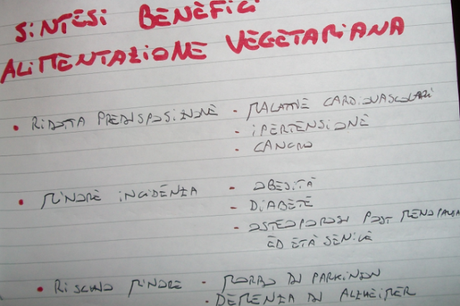 SINTESI BENEFICI
ALIMENTAZIONE VEGETARIANA
• RIDOTTA PREDISPOSIZIONE - MALATTIE CARDIOVASCOLARI
- IPERTENSIONE
- CANCRO
• MINORE INCIDENZA - OBESITÀ
- DIABETE
- OSTEOPOROSI POST MENOPAUSA
ED ETÀ SENILE
• RISCHIO MINORE - MORBO DI PARKINSON
- DEMENZA DI ALZHEIMER